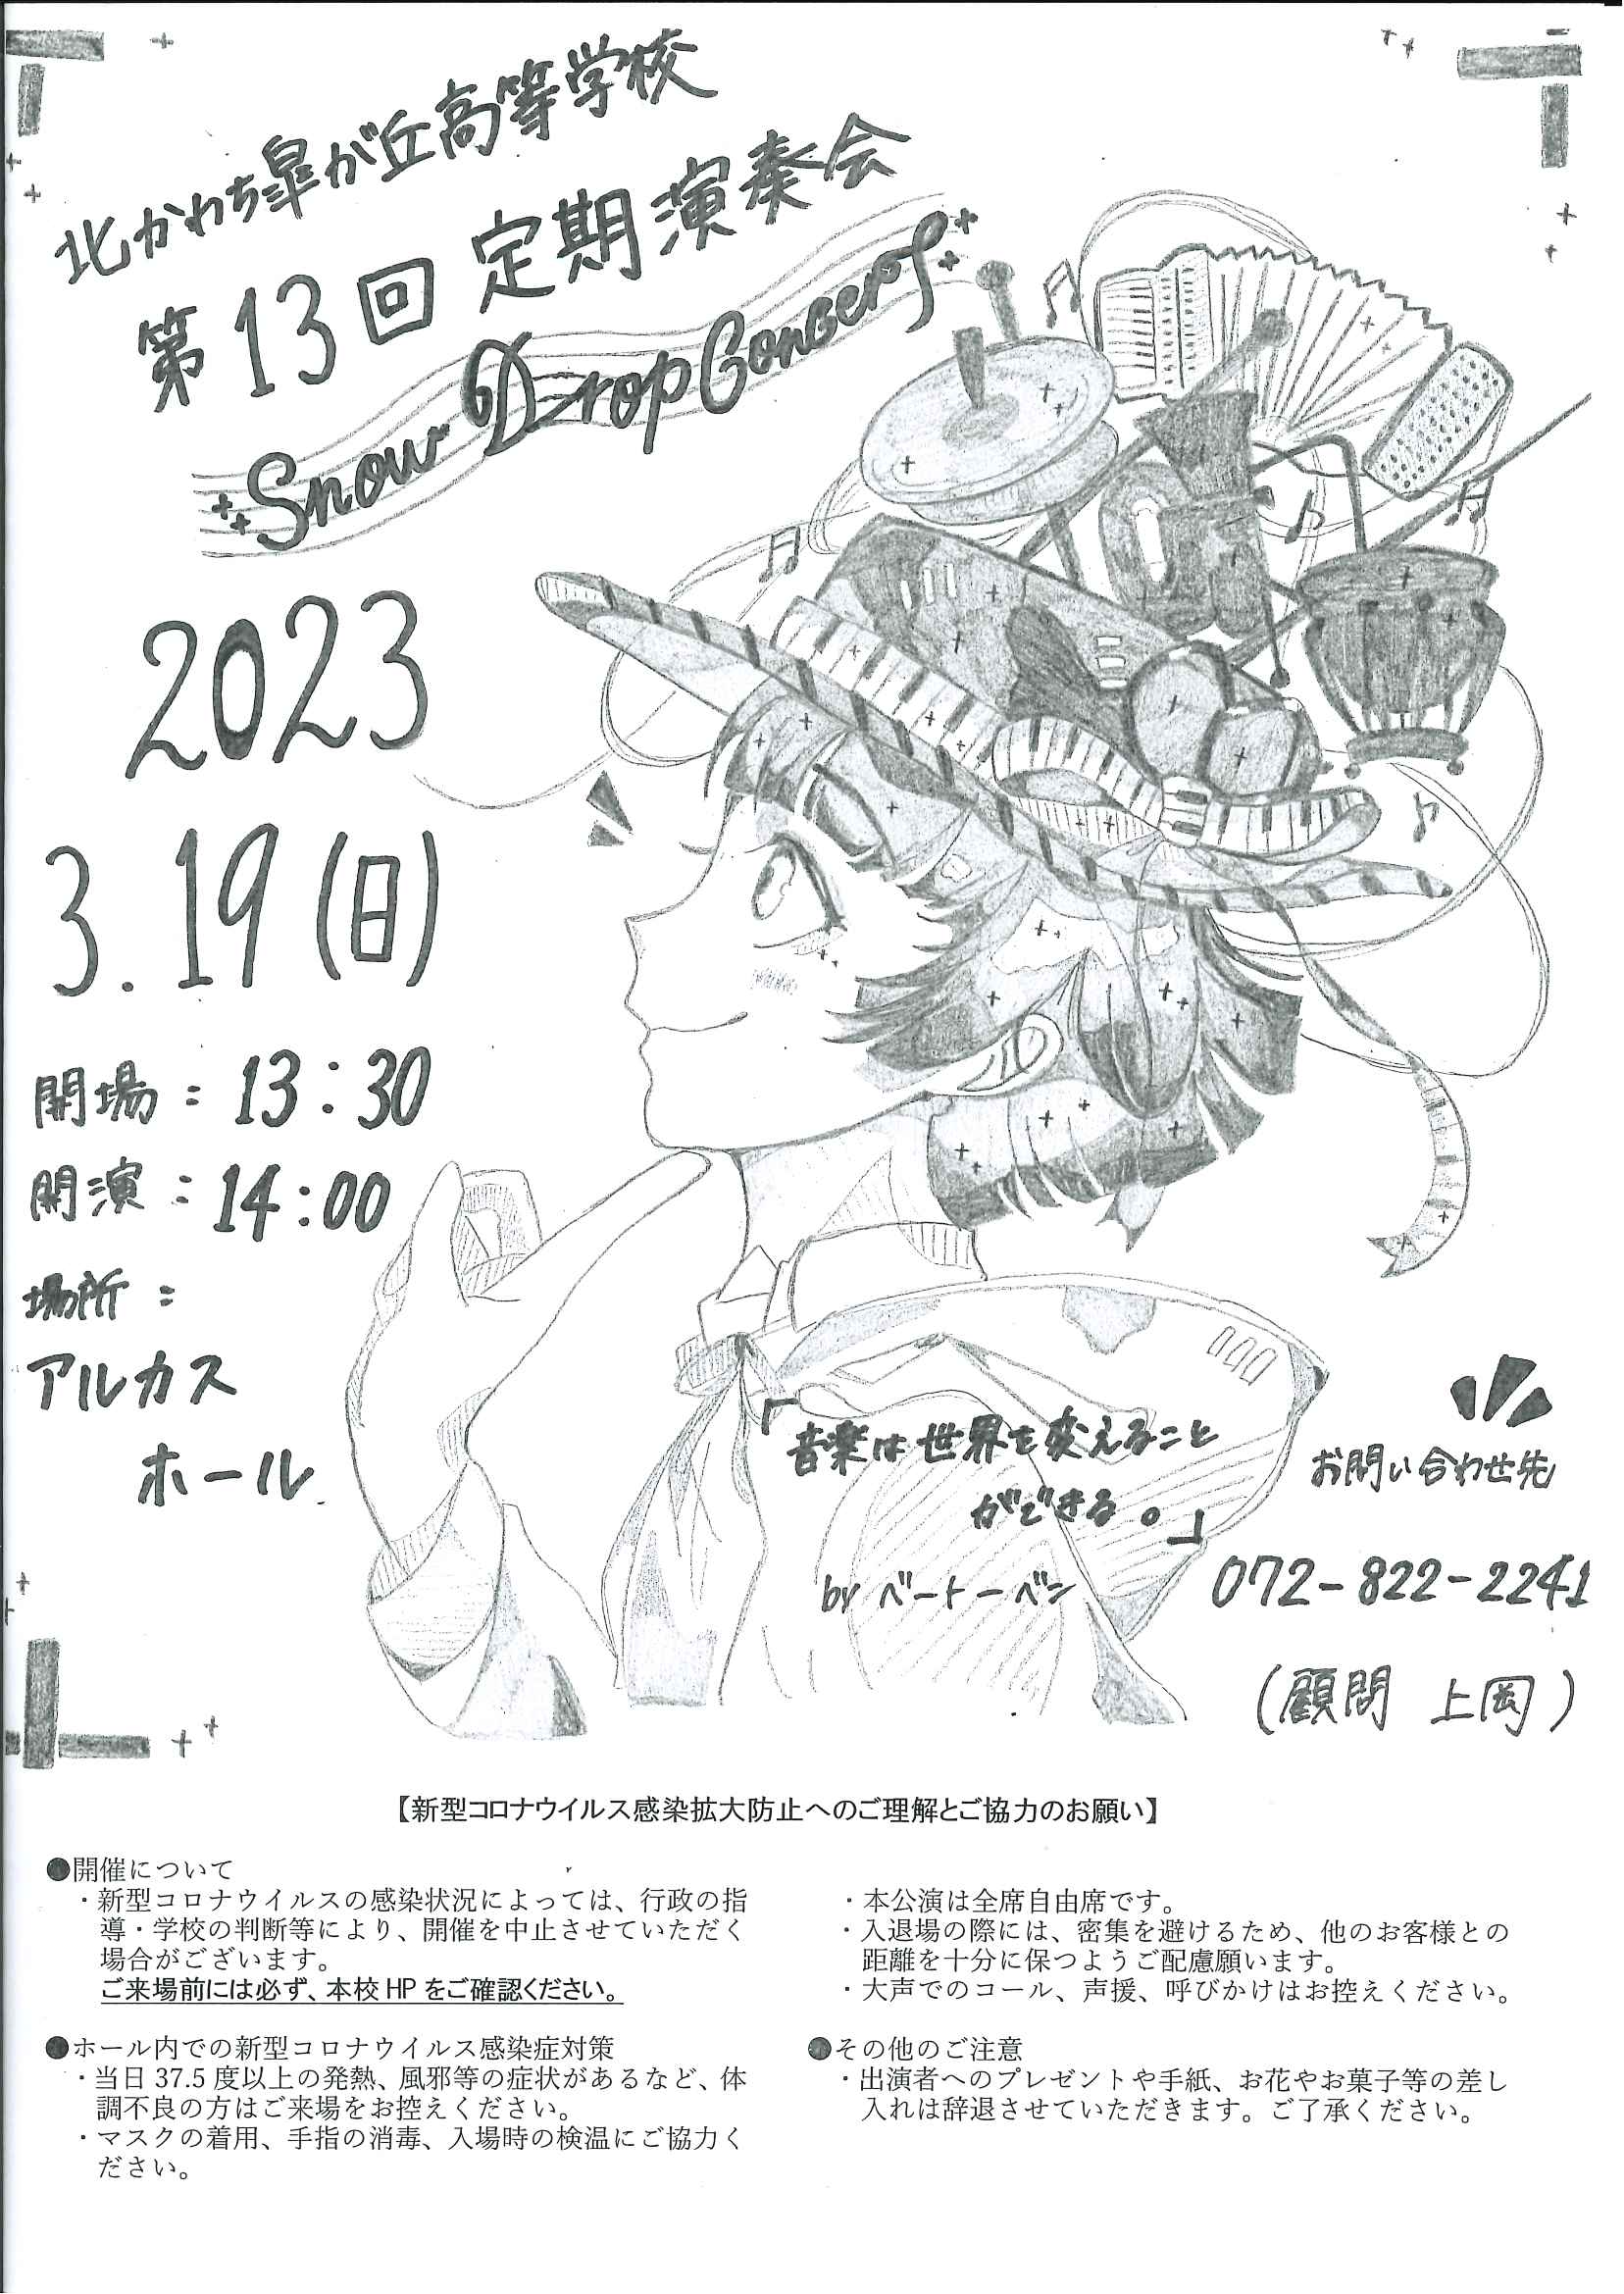 北かわち皐が丘高等学校
第13回 定期演奏会
Snow Drop Concert
2023
3.19(日)
開場：13:30
開演：14:00
場所：
アルカス
ホール
「音楽は世界を変えること
ができる。」
by ベートーベン
お問い合わせ先
072-822-2241
(顧問 上岡)
【新型コロナウイルス感染拡大防止へのご理解とご協力のお願い】
●開催について
・新型コロナウイルスの感染状況によっては、行政の指
導・学校の判断等により、開催を中止させていただく
場合がございます。
ご来場前には必ず、本校HPをご確認ください。
●ホール内での新型コロナウイルス感染症対策
・当日37.5度以上の発熱、風邪等の症状があるなど、体
調不良の方はご来場をお控えください。
・マスクの着用、手指の消毒、入場時の検温にご協力く
ださい。
・本公演は全席自由席です。
・入退場の際には、密集を避けるため、他のお客様との
距離を十分に保つようご配慮願います。
・大声でのコール、声援、呼びかけはお控えください。
●その他のご注意
・出演者へのプレゼントや手紙、お花やお菓子等の差し
入れは辞退させていただきます。ご了承ください。